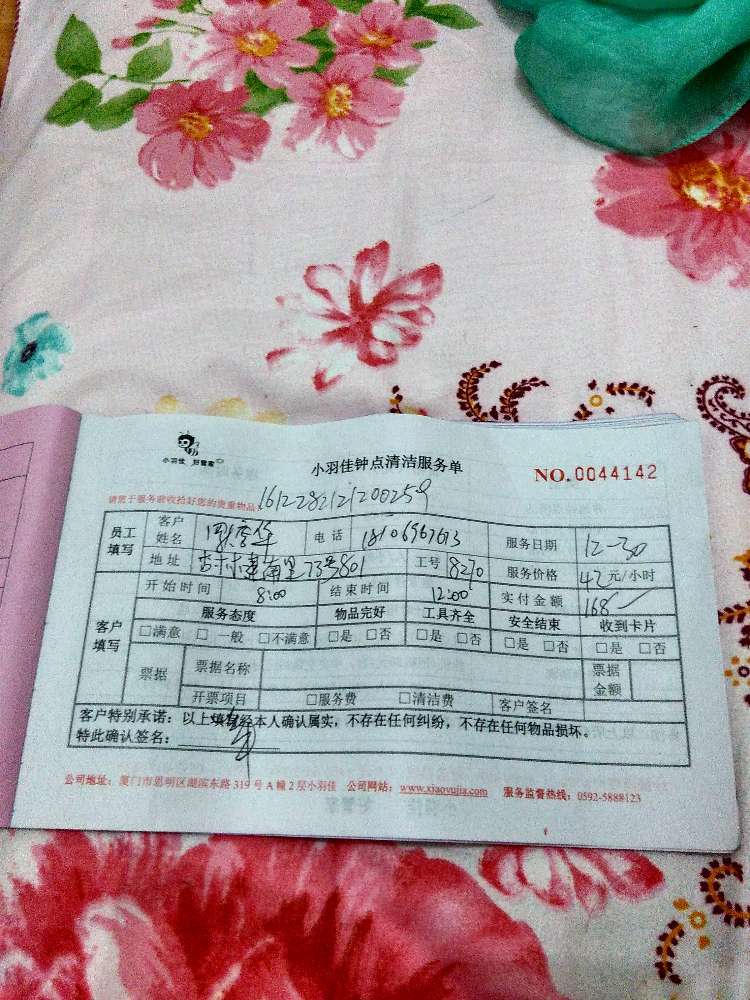 小羽佳 好管家
小羽佳钟点清洁服务单
NO.0044142
请您于服务前收拾好您的贵重物品
员工填写 客户姓名 电话 18106967613 服务日期 12-30
地址 73号801 工号 8270 服务价格 42元/小时
客户填写 开始时间 8:00 结束时间 12:00 实付金额 168
服务态度 物品完好 工具齐全 安全结束 收到卡片
□满意 □一般 □不满意 □是 □否 □是 □否 □是 □否 □是 □否
票据 票据名称 票据金额
开票项目 □服务费 □清洁费 客户签名
客户特别承诺：以上填写经本人确认属实，不存在任何纠纷，不存在任何物品损坏。
特此确认签名：
公司地址：厦门市思明区湖滨东路319号A幢2层小羽佳 公司网站：www.xiaoyujia.com 服务监督热线：0592-5888123